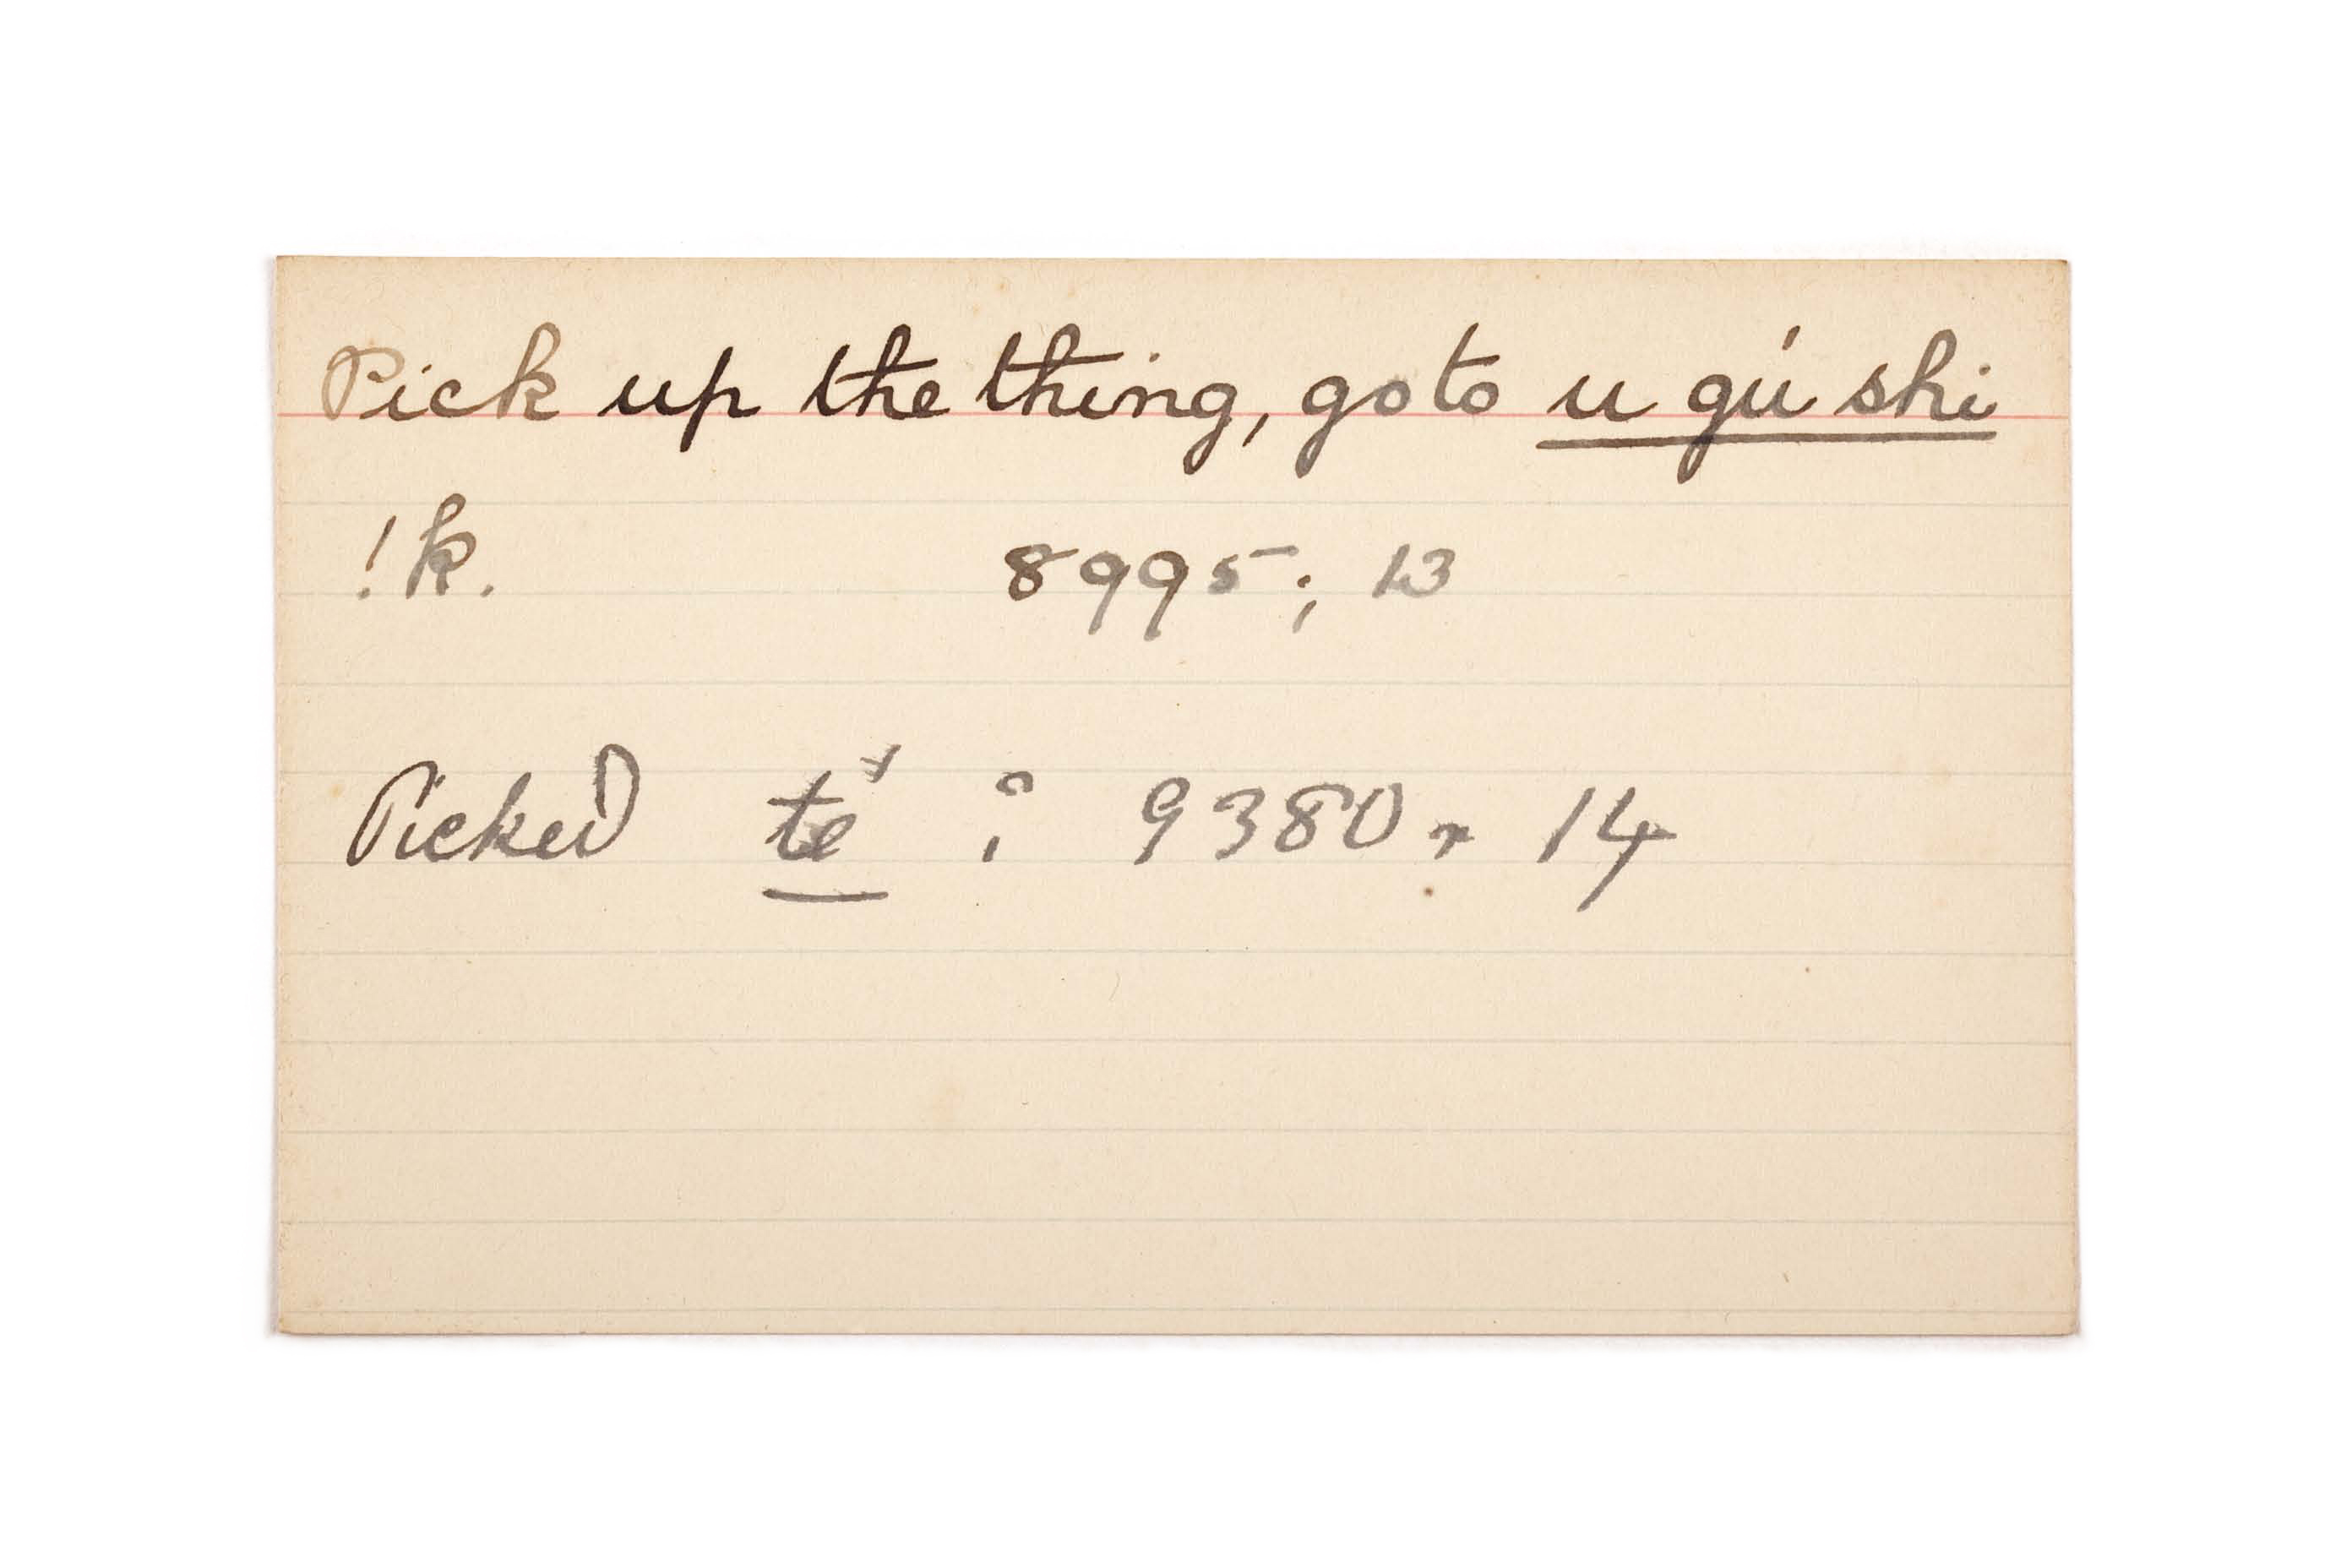 Pick up the thing, go to u gú shi
!k. 8995; 13
Picked té : 9380, 14